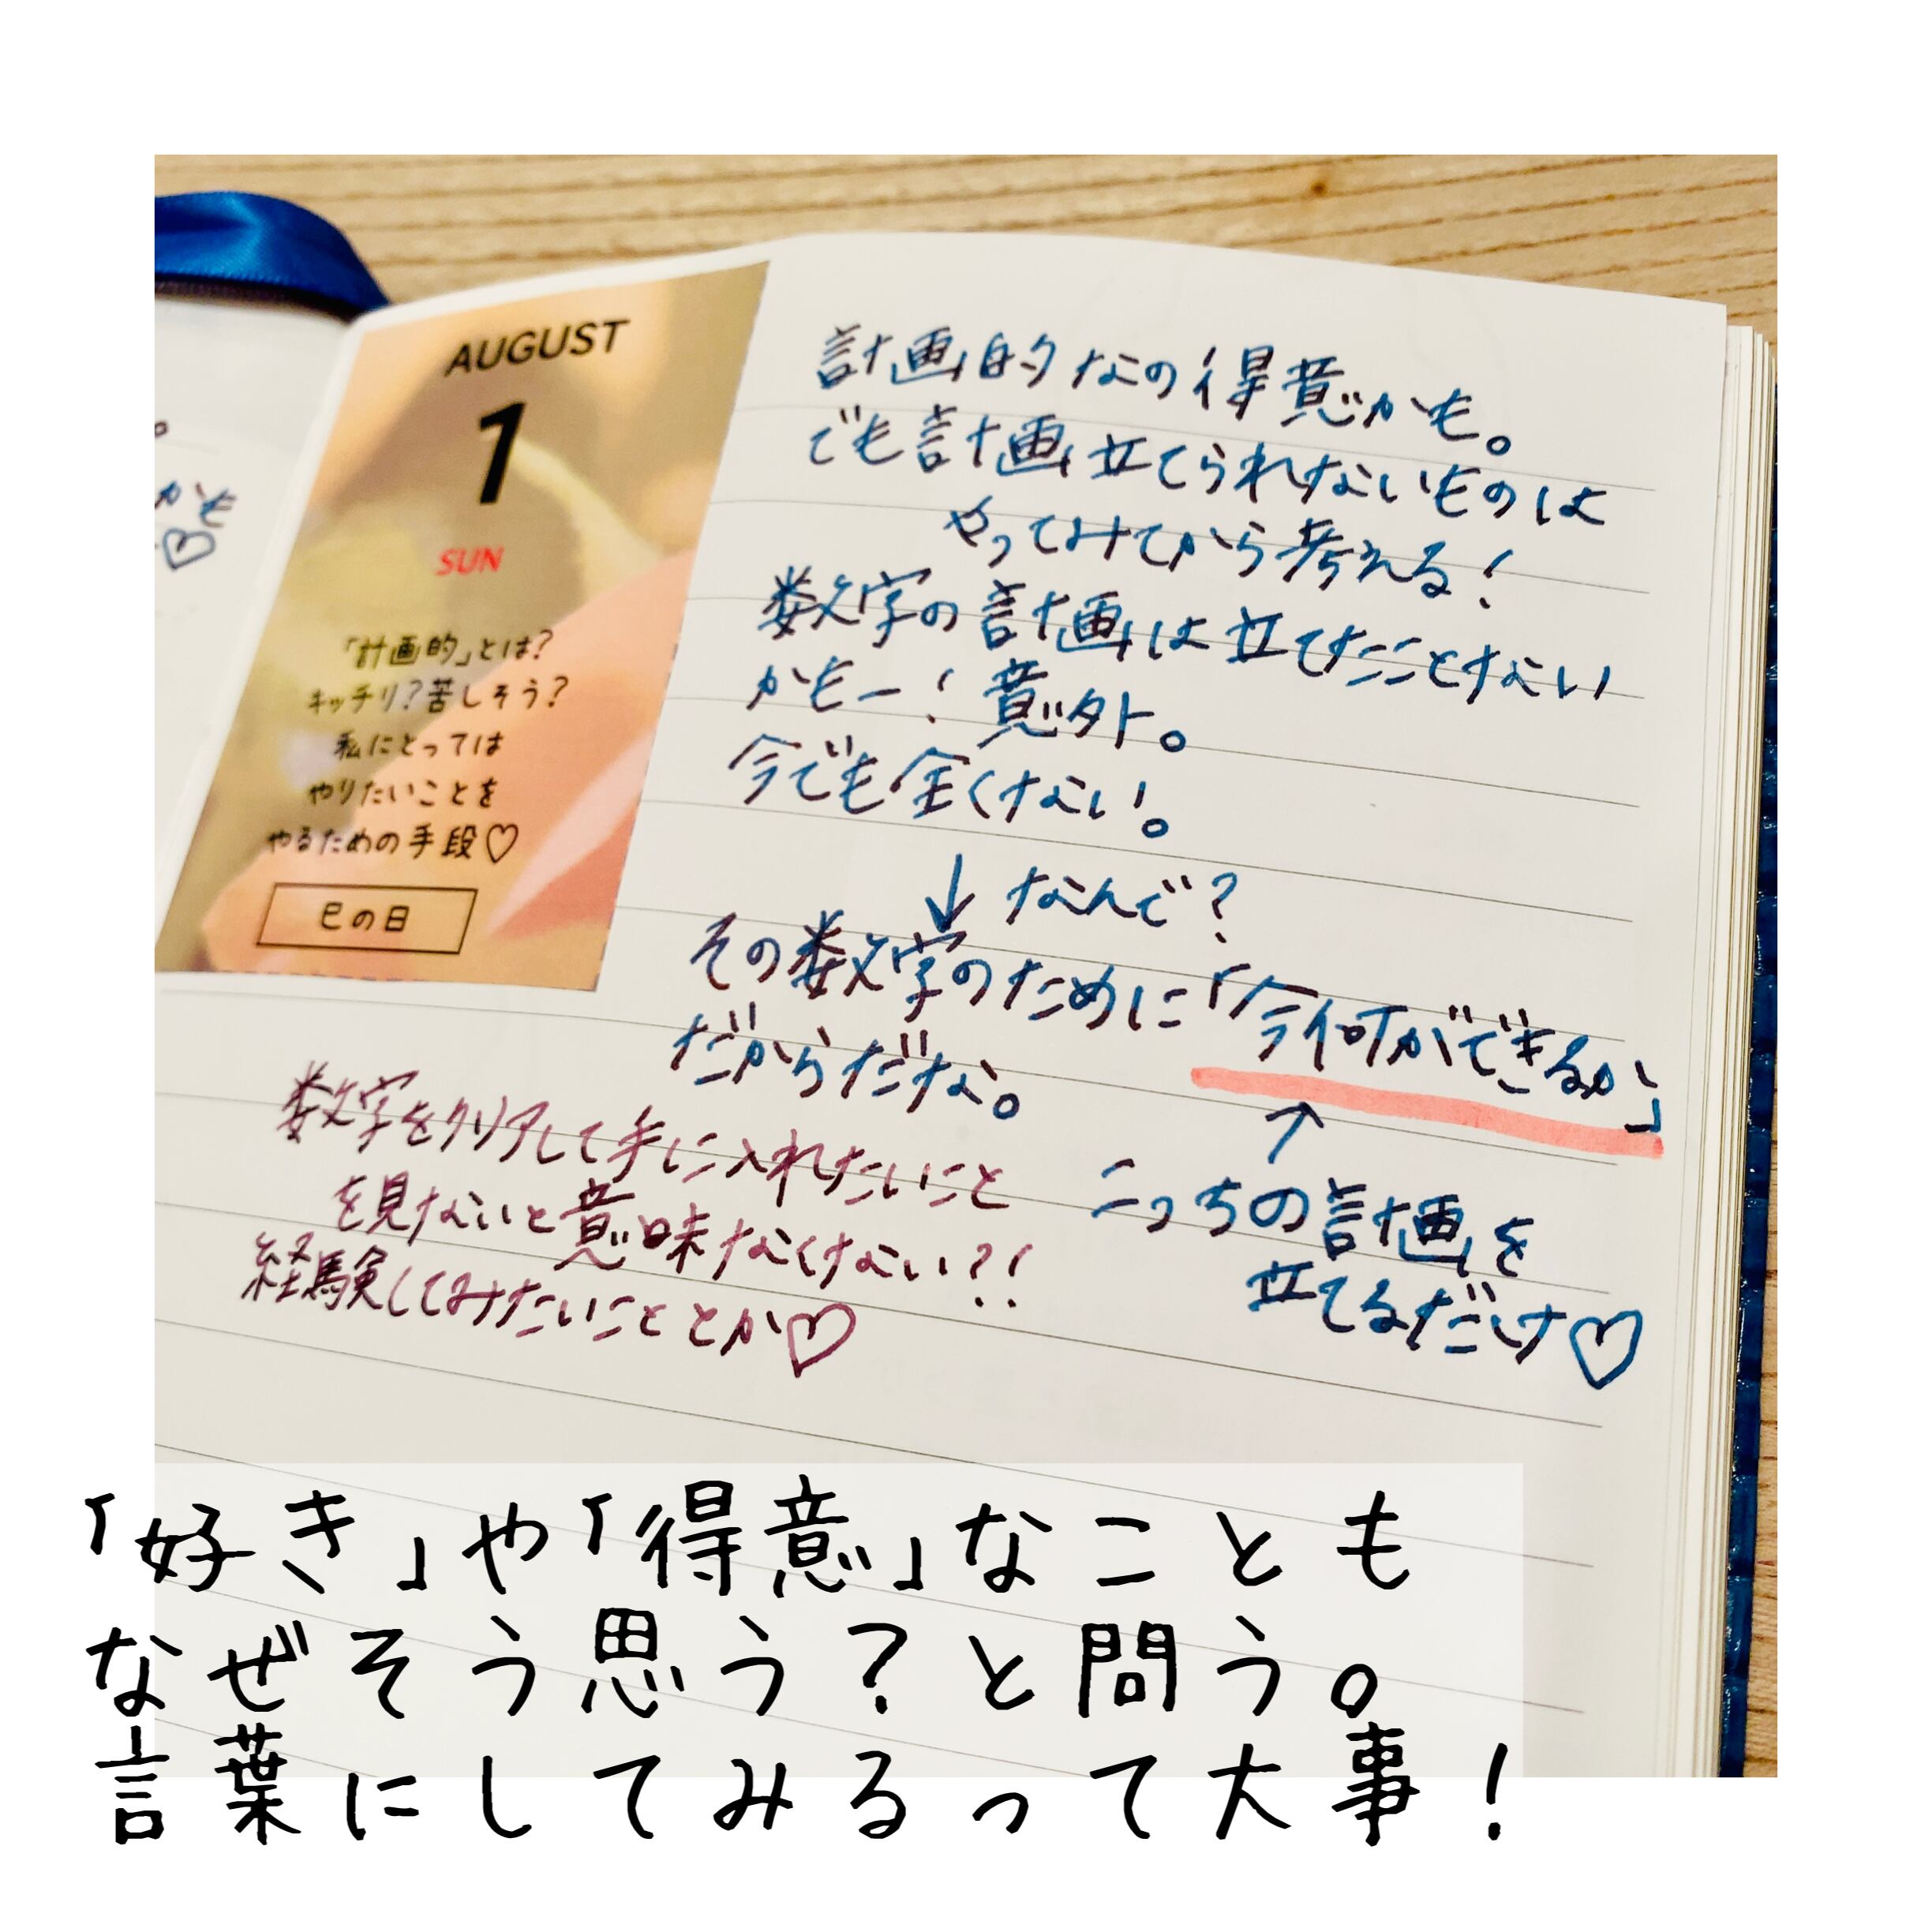 かも
♡
AUGUST
1
SUN
「計画的」とは?
キッチリ?苦しそう?
私にとっては
やりたいことを
やるための手段♡
巳の日
計画的なの得意かも。
でも計画立てられないものは
やってみてから考える!
数字の計画は立てたことない
かもー!意外。
今でも全くない。
↓なんで?
その数字のために「今何ができるか」
だからだな。
↑
こっちの計画を
立てるだけ♡
数字をクリアして手に入れたいこと
を見ないと意味なくない?!
経験してみたいこととか♡
「好き」や「得意」なことも
なぜそう思う?と問う。
言葉にしてみるって大事!